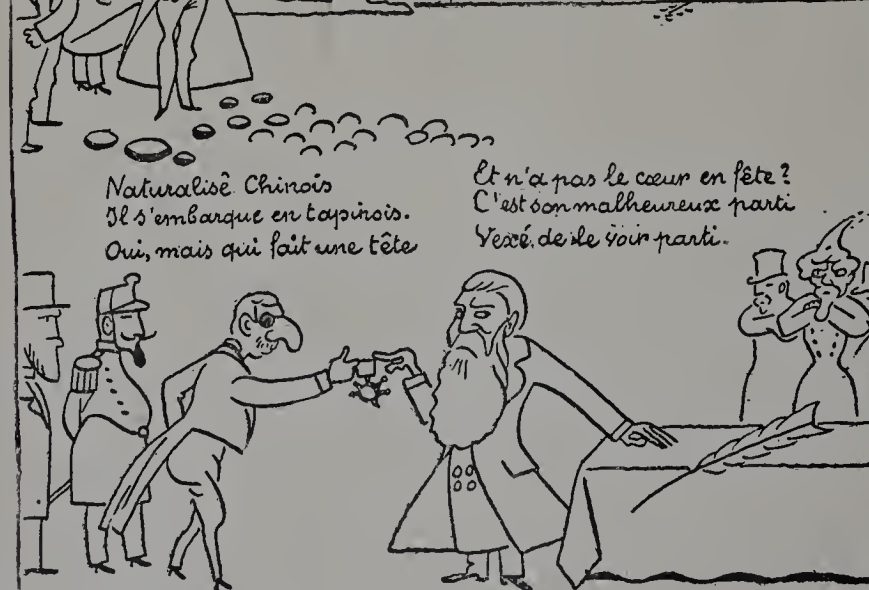 Naturalisé Chinois
Il s'embarque en tapinois.
Oui, mais qui fait une tête
Et n'a pas le cœur en fête ?
C'est son malheureux parti
Vexé, de le voir parti.